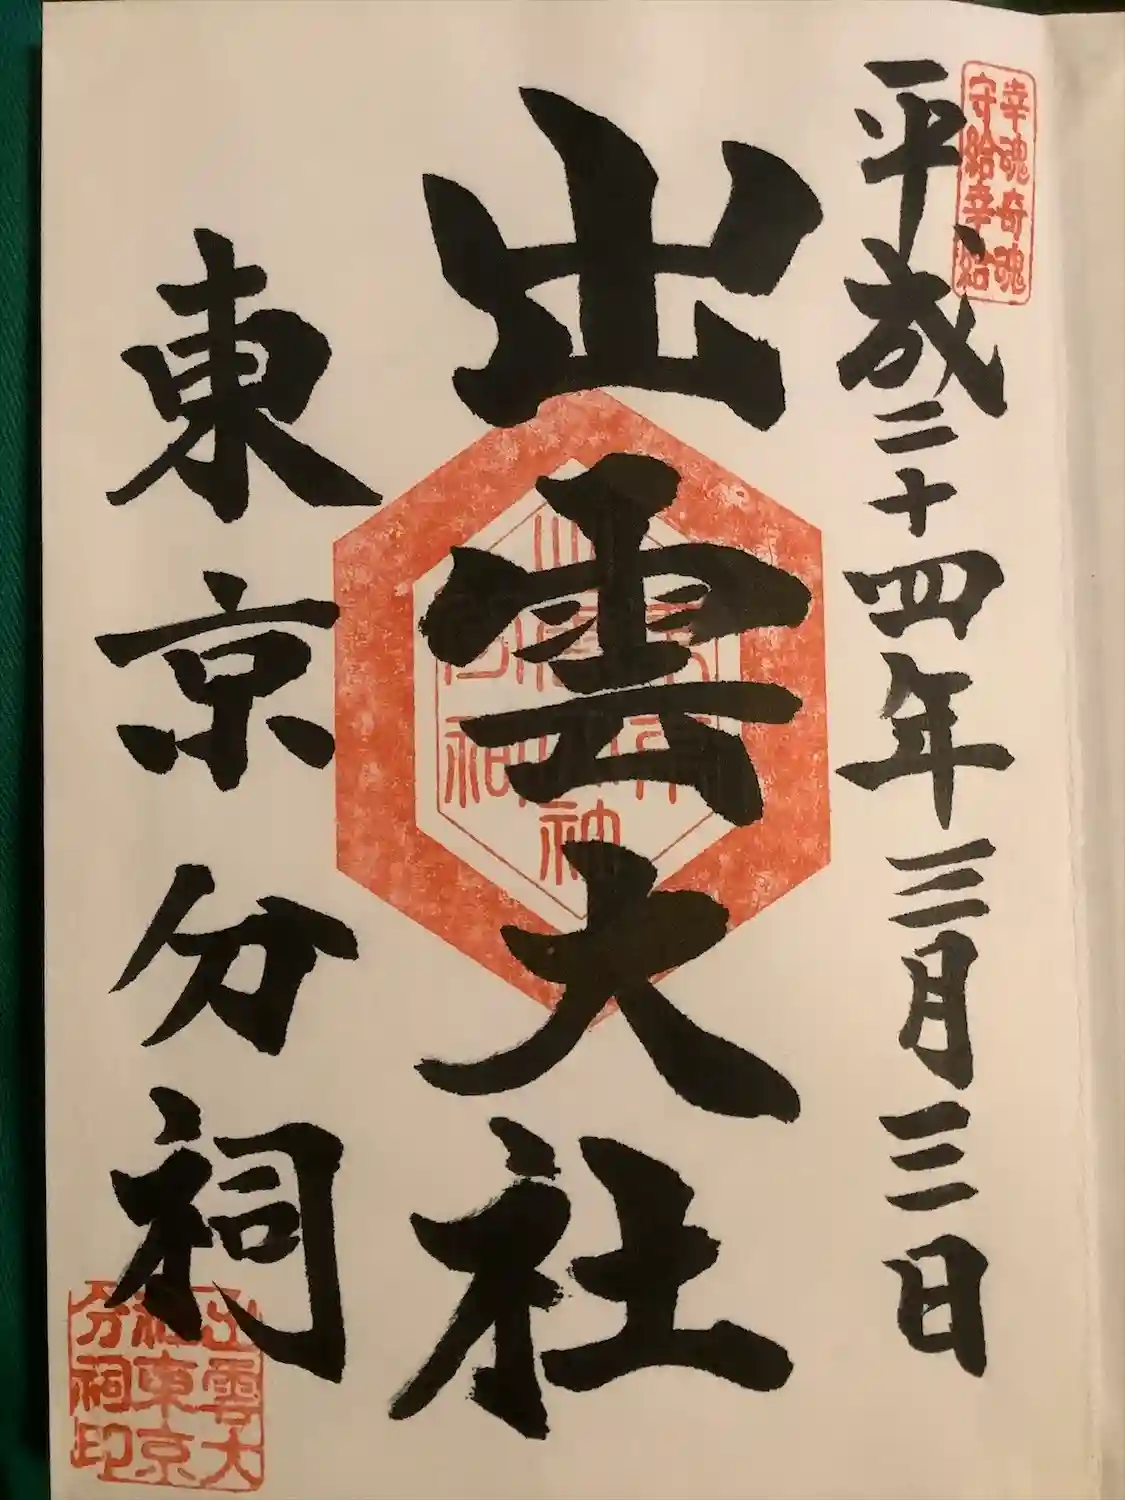 幸魂奇魂
守給幸給
平成二十四年三月三日
出雲大社
東京分祠
出雲大
社東京
分祠印